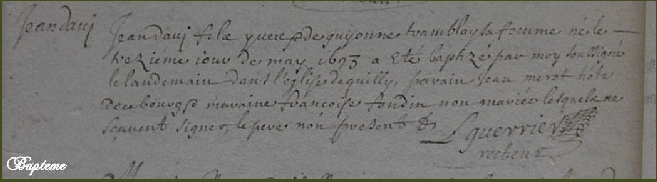 Jean davi Jean davi filz yves & de guyonne tramblay sa femme né le
treziéme iour de may 1693 a eté baptizé par moy soussigné
le landemain dans l'eglise de quilly, parain Jean merot hôte
de ce bourg & maraine francoise fondin non mariée lesquels ne
scavent signer, le pere non present
L guerrier
recteur
Bapteme